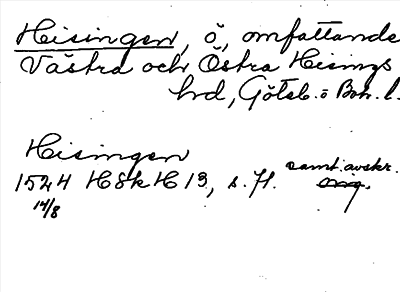 Hisingen, ö, omfattande
Västra och Östra Hisings
hrd, Göteb. o Boh. l.
Hisingen
samt. avskr.
1524 HSkH 13, s. 71. orig.
14/8